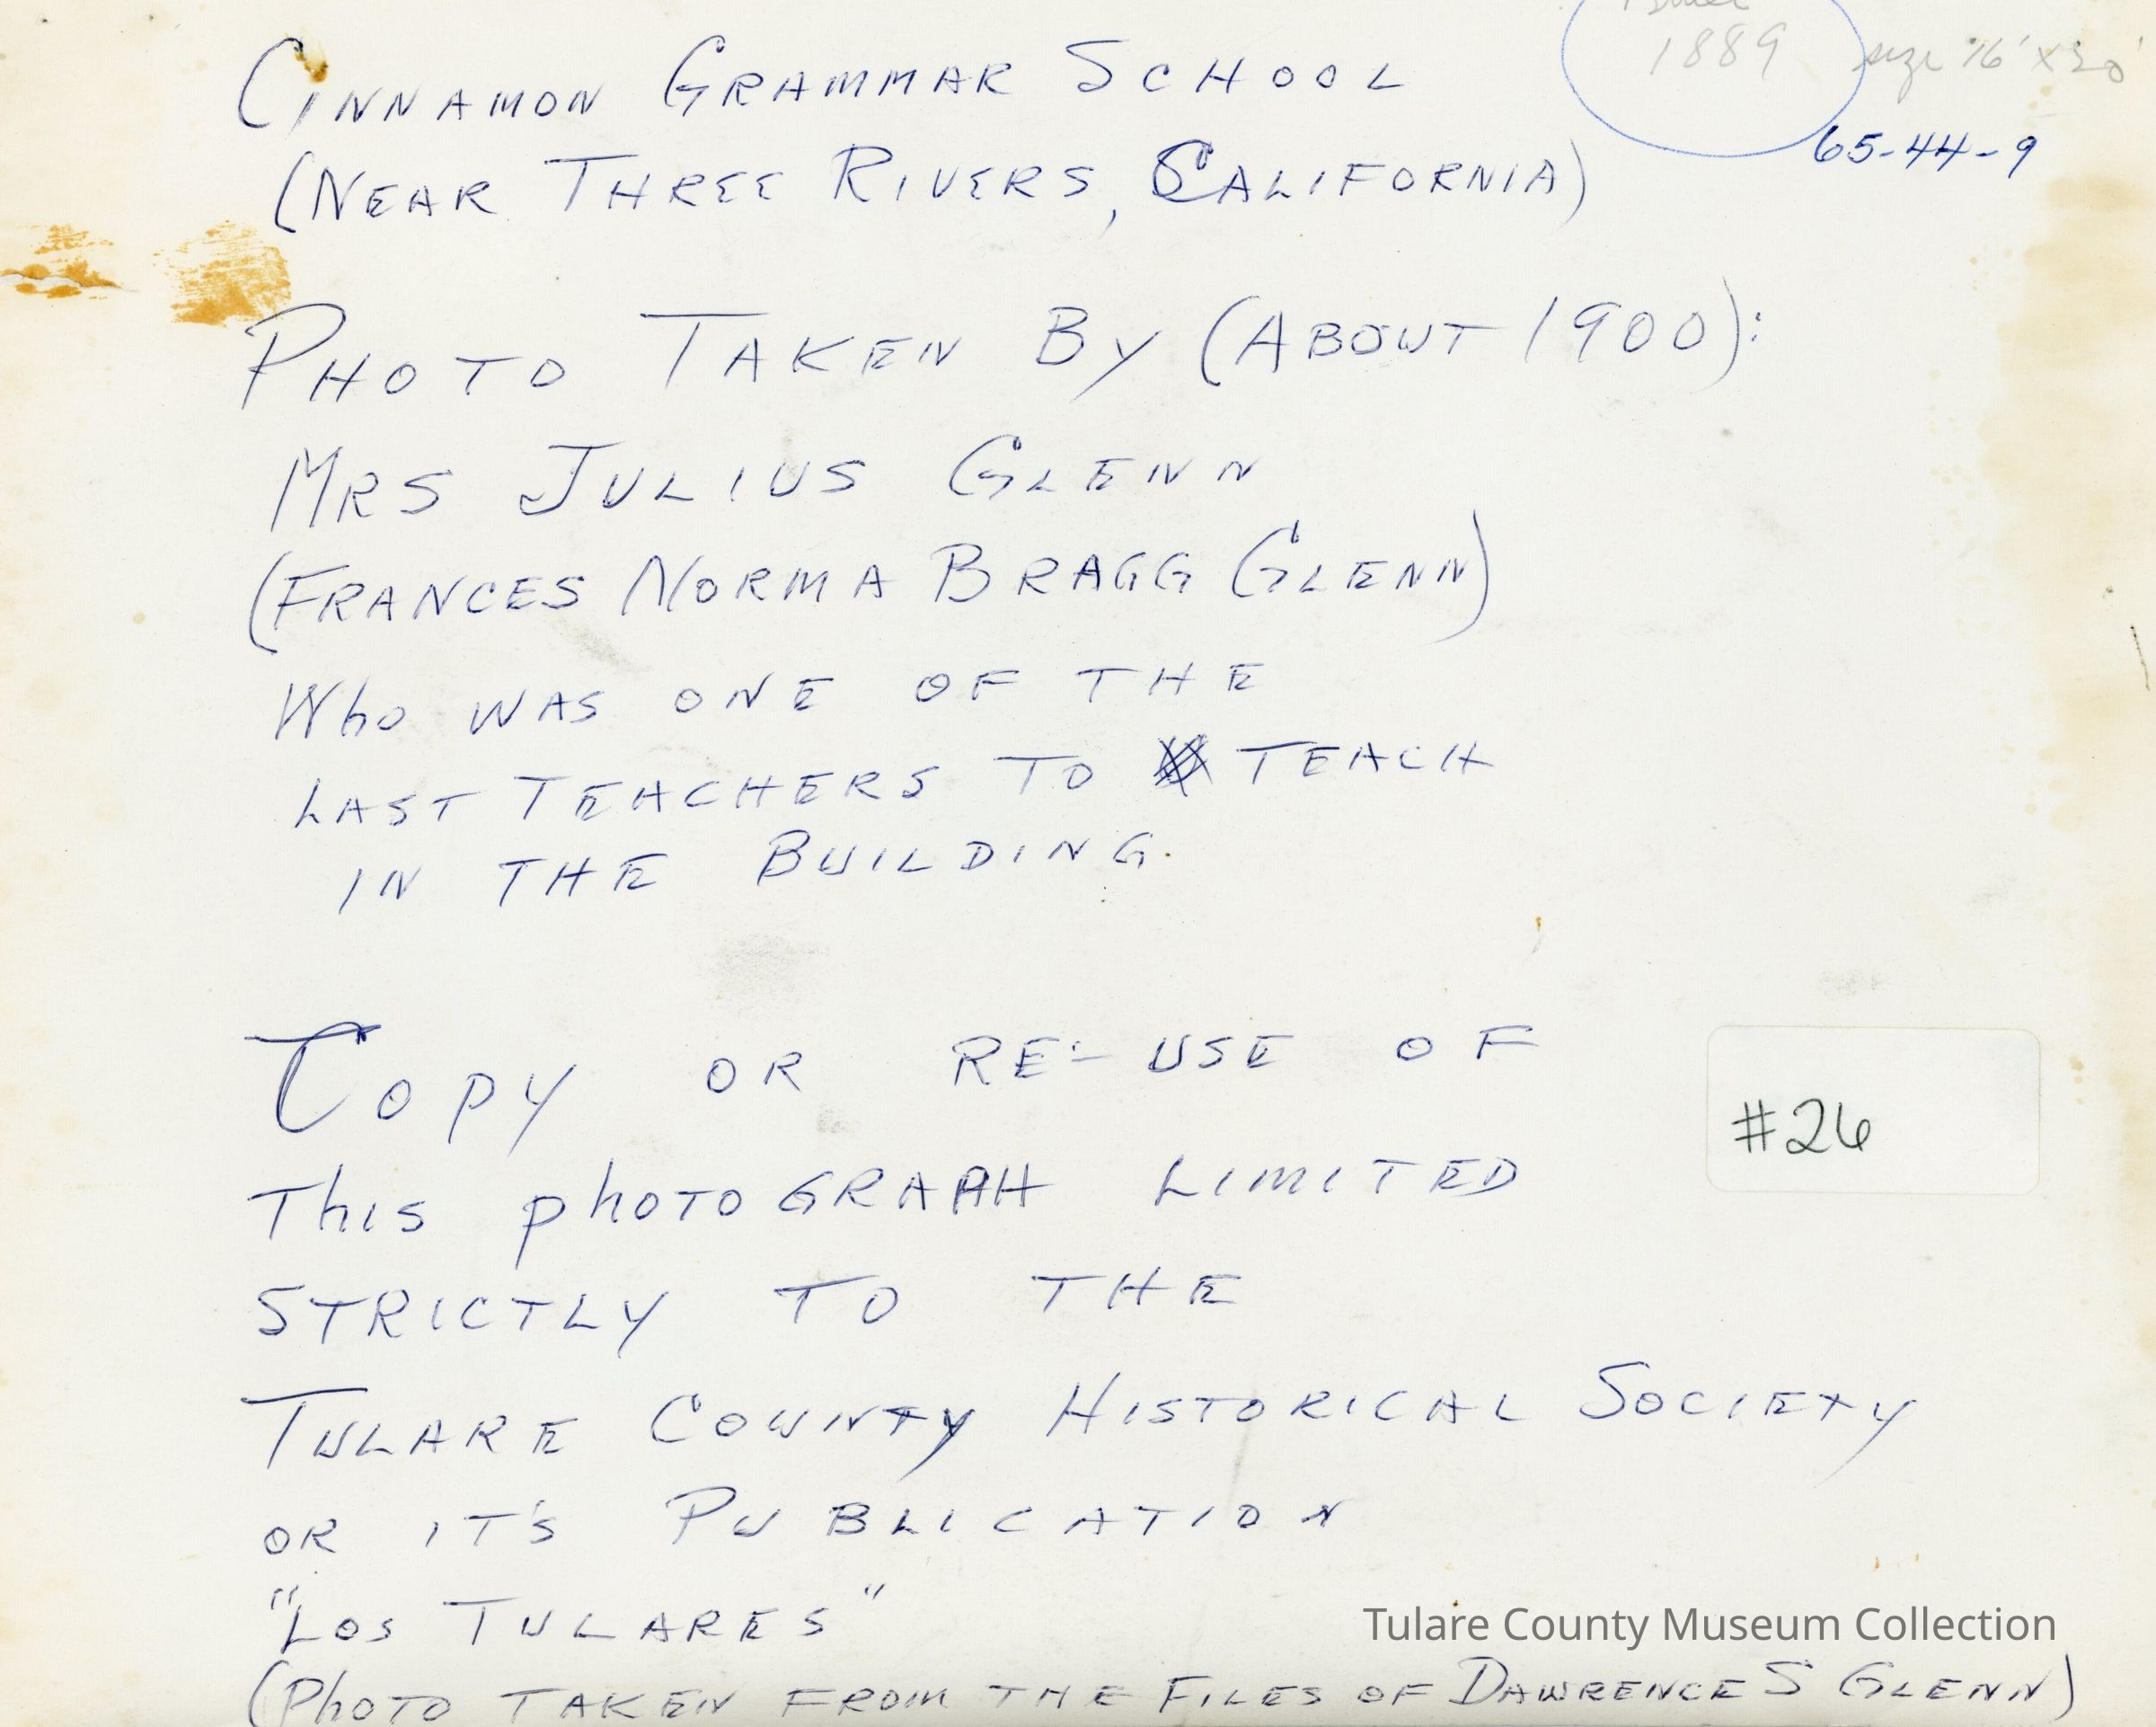 1889
size 16' x 30'
65-44-9
CINNAMON GRAMMAR SCHOOL
(NEAR THREE RIVERS, CALIFORNIA)
PHOTO TAKEN BY (ABOUT 1900):
MRS JULIUS GLENN
(FRANCES NORMA BRAGG GLENN)
Who WAS ONE OF THE
LAST TEACHERS TO TEACH
IN THE BUILDING.
COPY OR RE-USE OF
#26
This photoGRAPH LIMITED
STRICTLY TO THE
TULARE COUNTY HISTORICAL SOCIETY
OR IT'S PUBLICATION
"LOS TULARES"
Tulare County Museum Collection
(PhOTO TAKEN FROM THE FILES OF DAWRENCE S GLENN)